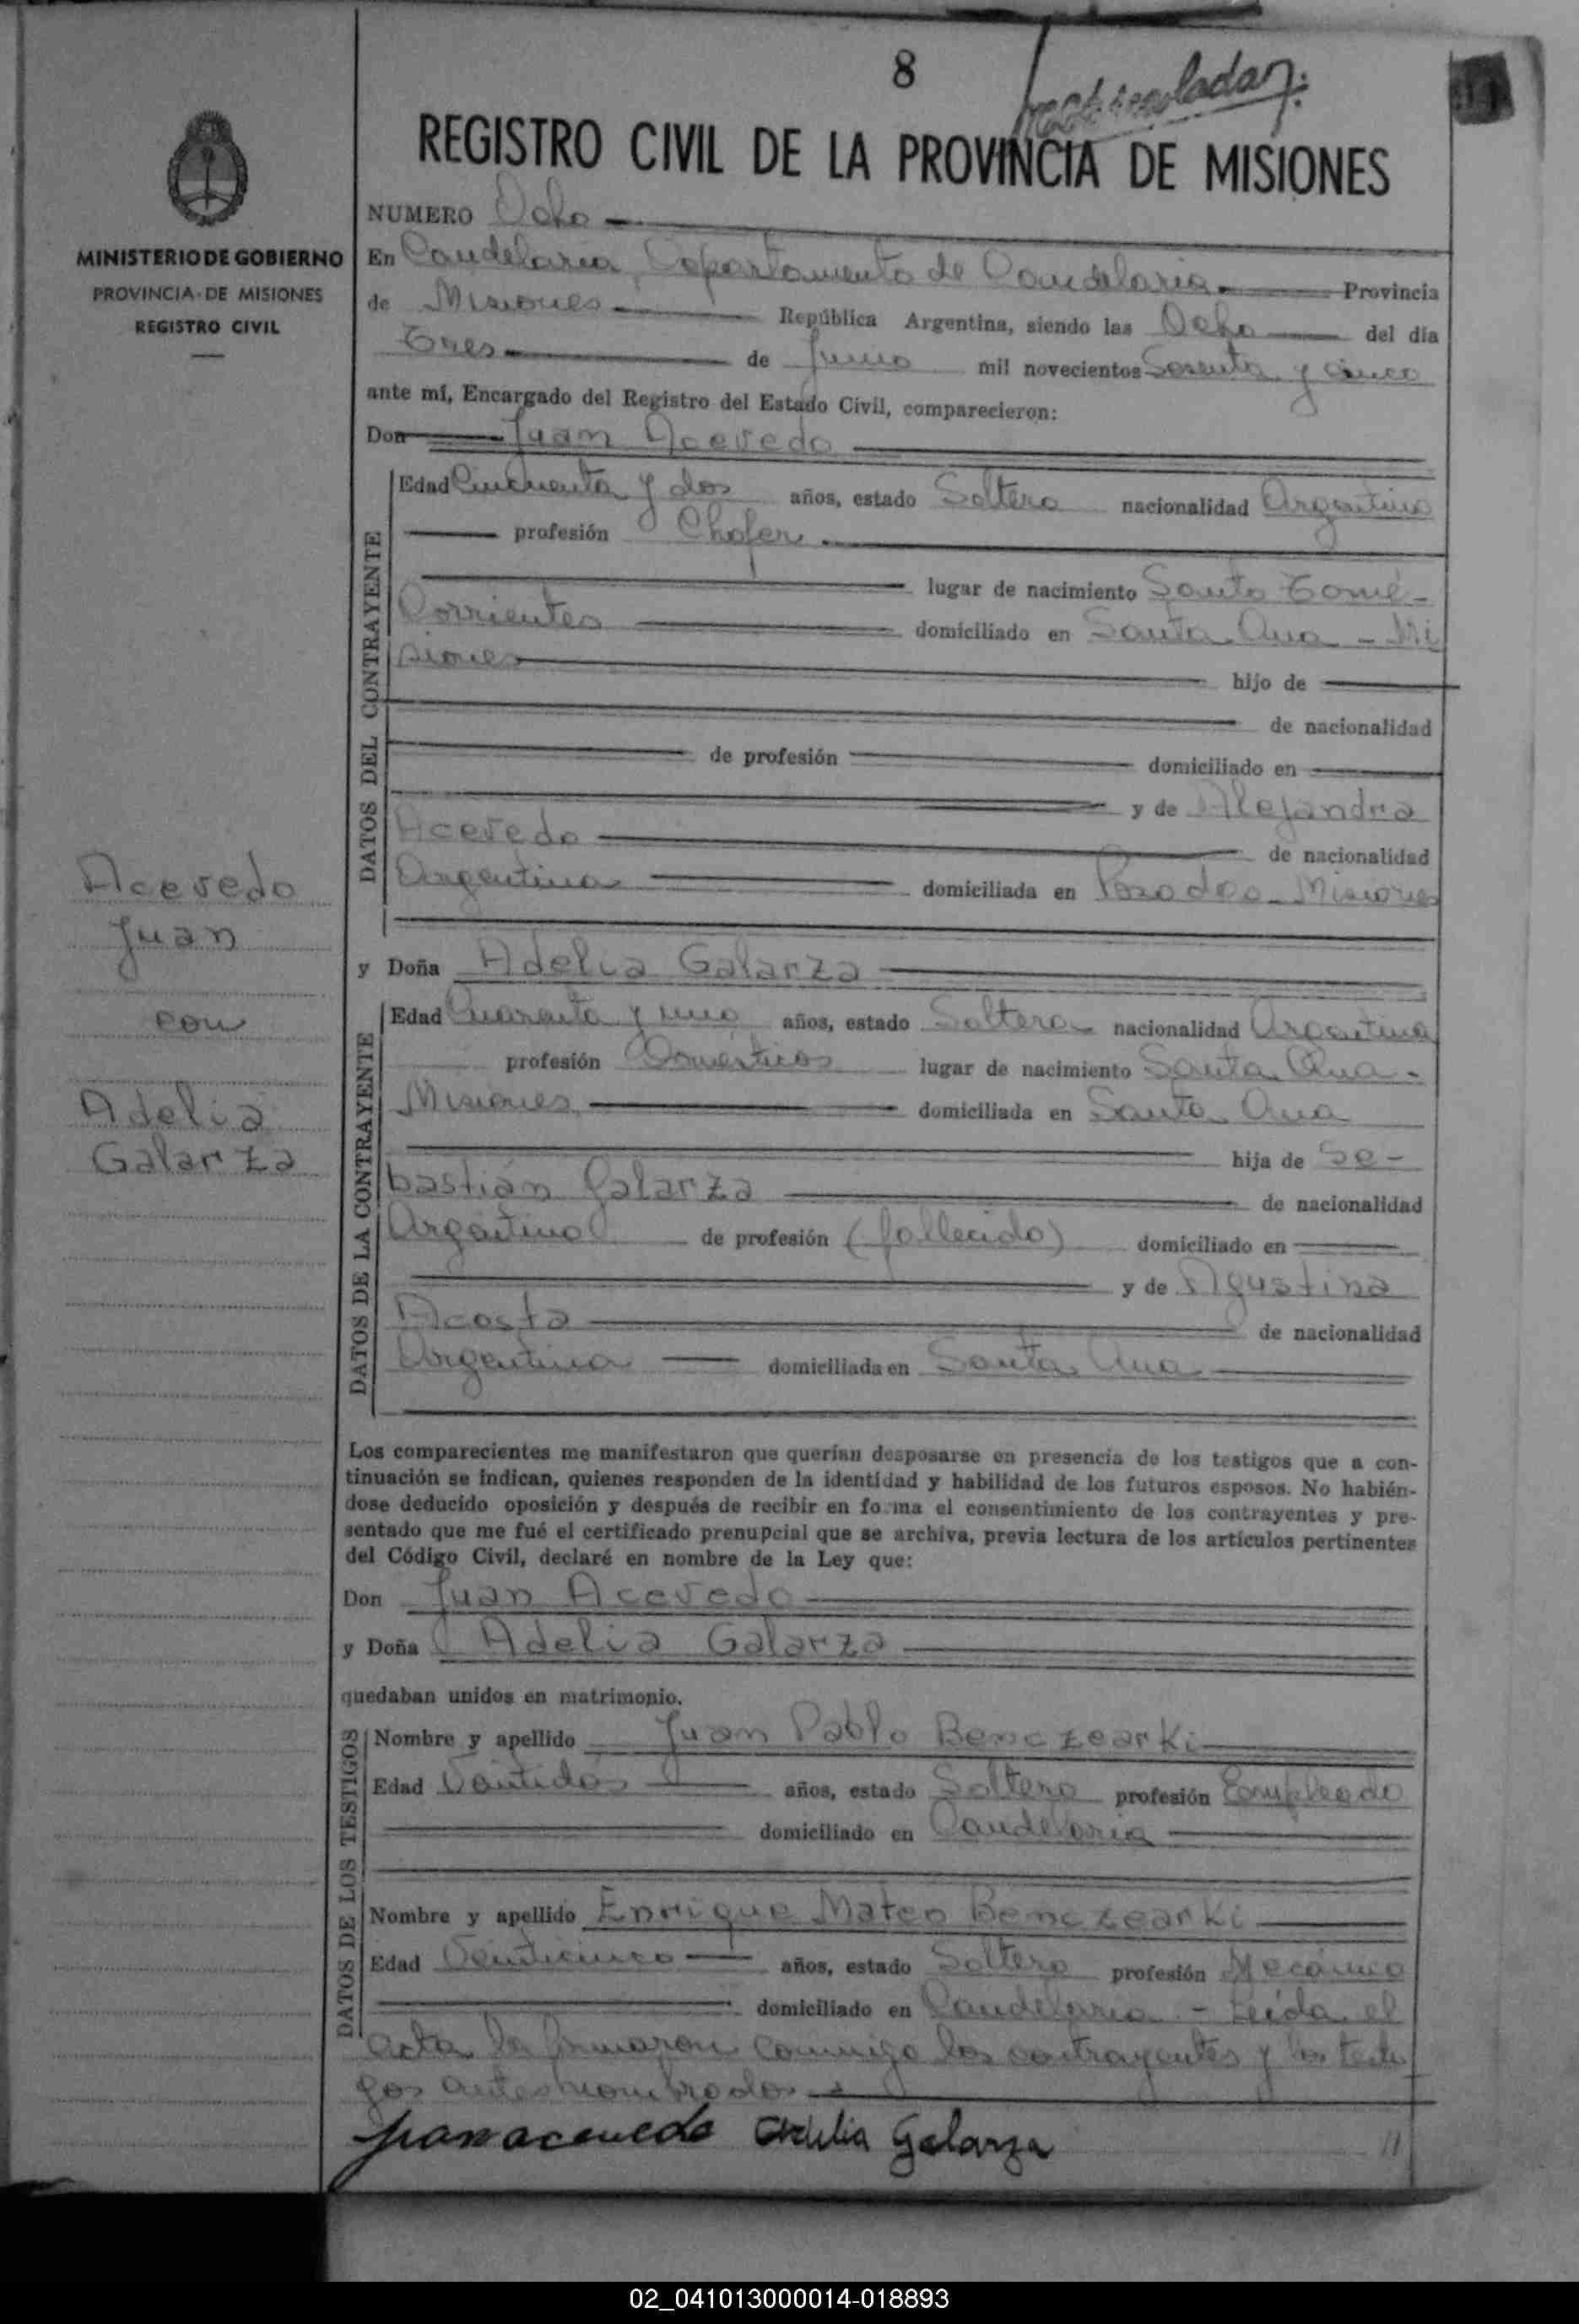 8
REGISTRO CIVIL DE LA PROVINCIA DE MISIONES
MINISTERIO DE GOBIERNO
PROVINCIA DE MISIONES
REGISTRO CIVIL
NUMERO Ocho
En Candelaria, Departamento de Candelaria Provincia
de Misiones República Argentina, siendo las Ocho del día
Tres de Junio mil novecientos Sesenta y cinco
ante mí, Encargado del Registro del Estado Civil, comparecieron:
Don Juan Acevedo
DATOS DEL CONTRAYENTE
Edad Cincuenta y dos años, estado Soltero nacionalidad Argentino
profesión Chofer
lugar de nacimiento Santo Tomé -
Corrientes domiciliado en Santa Ana - Mi
siones hijo de
de nacionalidad
de profesión domiciliado en
y de Alejandra
Acevedo de nacionalidad
Argentina domiciliada en Posadas - Misiones
Acevedo
Juan
con
Adelia
Galarza
y Doña Adelia Galarza
DATOS DE LA CONTRAYENTE
Edad Cuarenta y uno años, estado Soltera nacionalidad Argentina
profesión Domésticos lugar de nacimiento Santa Ana -
Misiones domiciliada en Santa Ana
hija de Se-
bastián Galarza de nacionalidad
Argentino de profesión (fallecido) domiciliado en
y de Agustina
Acosta de nacionalidad
Argentina domiciliada en Santa Ana
Los comparecientes me manifestaron que querían desposarse en presencia de los testigos que a con-
tinuación se indican, quienes responden de la identidad y habilidad de los futuros esposos. No habién-
dose deducido oposición y después de recibir en forma el consentimiento de los contrayentes y pre-
sentado que me fué el certificado prenupcial que se archiva, previa lectura de los artículos pertinentes
del Código Civil, declaré en nombre de la Ley que:
Don Juan Acevedo
y Doña Adelia Galarza
quedaban unidos en matrimonio.
DATOS DE LOS TESTIGOS
Nombre y apellido Juan Pablo Benczearki
Edad Veintidós años, estado Soltero profesión Empleado
domiciliado en Candelaria
Nombre y apellido Enrique Mateo Benczearki
Edad Veinticinco años, estado Soltero profesión Mecánico
domiciliado en Candelaria - Leída el
acta la firmaron conmigo los contrayentes y los testi
gos antes nombrados
juan acevedo Adelia Galarza
02_041013000014-018893